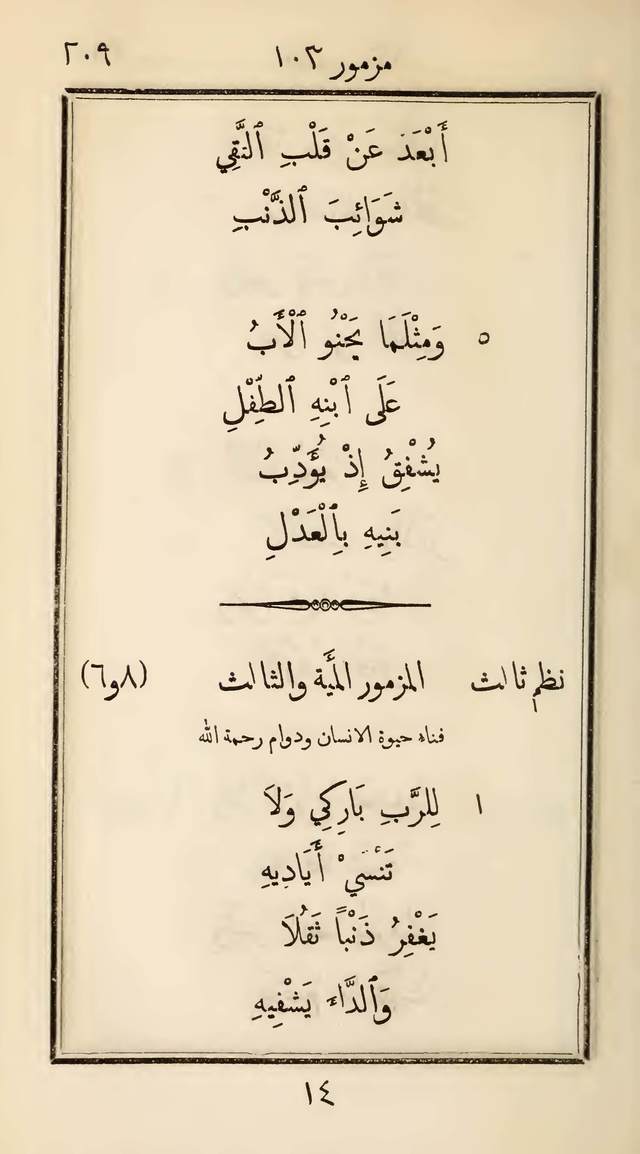 مزمور ١٠٣ ٢٠٩
أَبْعَدَ عَنْ قَلْبِ ٱلنَّقِي
شَوَائِبَ ٱلذَّنْبِ
٥ وَمِثْلَمَا يَحْنُو ٱلْأَبُ
عَلَى ٱبْنِهِ ٱلطِّفْلِ
يُشْفِقُ إِذْ يُؤَدِّبُ
بَنِيهِ بِٱلْعَدْلِ
نظم ثالث المزمور المأَية والثالث (٨و٦)
فناء حيوة الانسان ودوام رحمة الله
١ لِلرَّبِ بَارِكِي وَلاَ
تَنْسَيْ أَيَادِيهِ
يَغْفِرُ ذَنْبًا ثَقُلاَ
وَٱلدَّاءَ يَشْفِيهِ
١٤